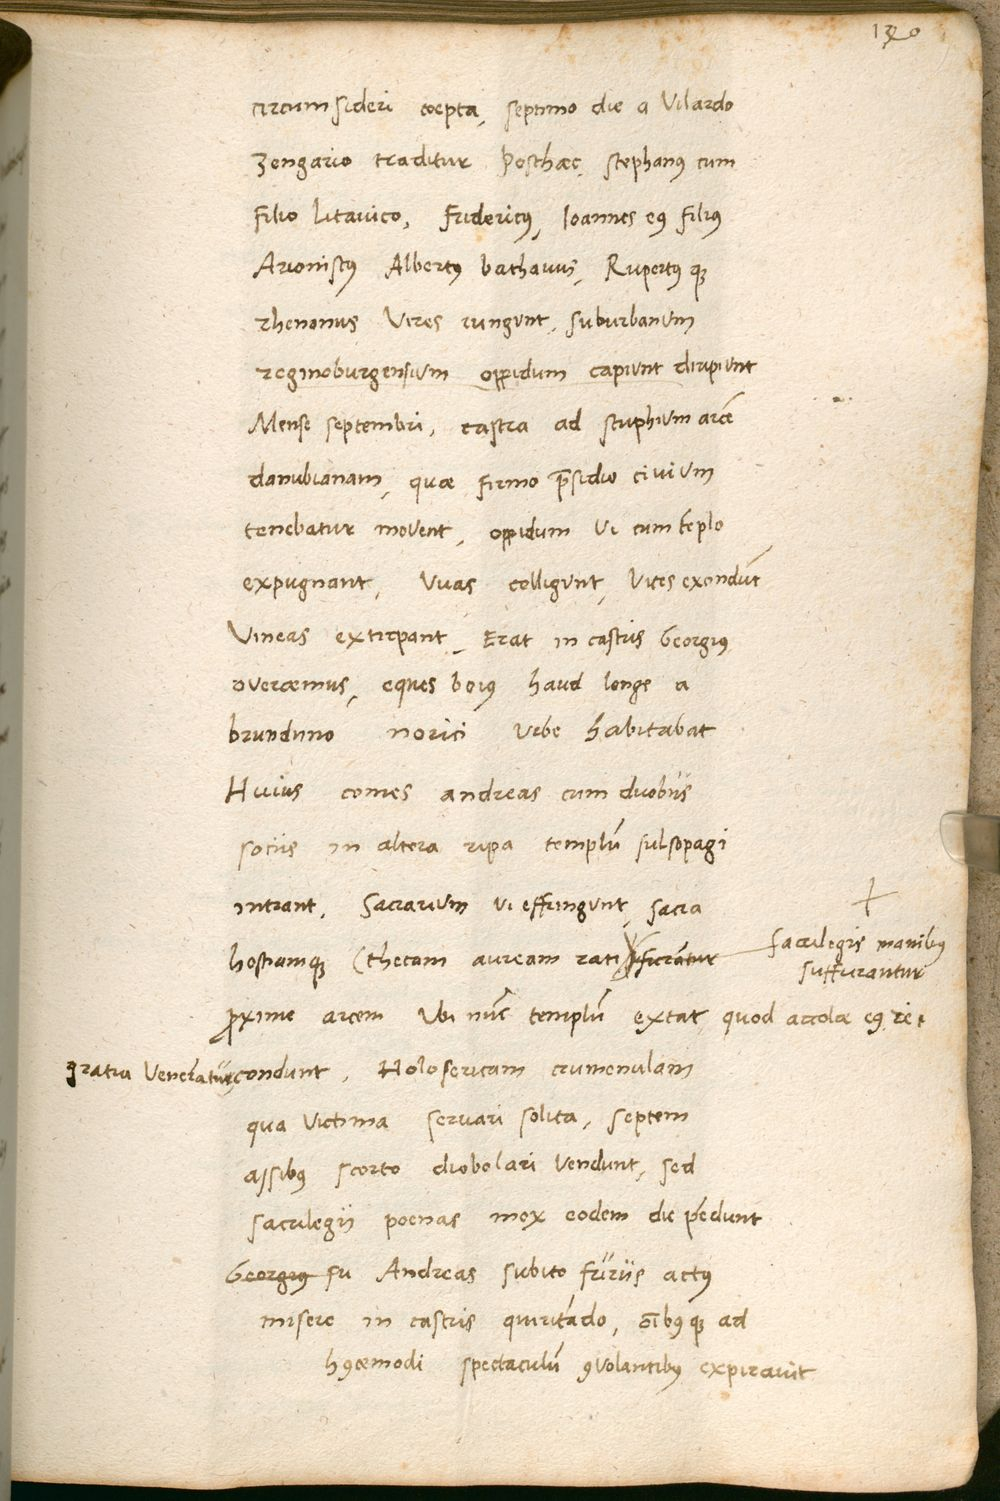 130
circumsideri coepta, septimo die a Vilardo
Zengario traditur Posthæc, stephanꝰ cum
filio litauico, fridericꝰ, Ioannes eꝰ filiꝰ
Arionistꝰ Albertꝰ bathauus, Rupertꝰ qꝫ
rhenonus Vires iungunt, suburbanum
reginoburgensium oppidum capiunt diripiunt
Mense septembri, castra ad stuphium arcē
danubianam, quæ firmo p̄sidio civium
tenebatur movent, oppidum vi cum tēplo
expugnant, Vuas colligunt, Vites exondūt
Vineas extirpant, Erat in castris Georgiꝰ
overcæmus, eques boiꝰ haud longe a
brunduno norici urbe habitabat
Huius comes andreas cum duobus
sociis in altera ripa templū sulsopagi
intrant, Sacrarium vi effringunt, sacra
hostiamqꝫ (thecam auream rati suffurātur sacrilegis manibꝰ
suffurantur
ꝓxime arcem Vbi nūc templū extat, quod accolæ eꝰ rei
gratia Venerātur, condunt, Holosericam crumenulam
qua Victima servari solita, septem
assibꝰ scorto diobolari vendunt, sed
sacrilegii poenas mox eodem die pēdunt
Georgiꝰ su Andreas subito furiis actꝰ
misere in castris quiritādo, oībꝰqꝫ ad
hꝰcæmodi spectaculū ꝯvolantibꝰ expiravit